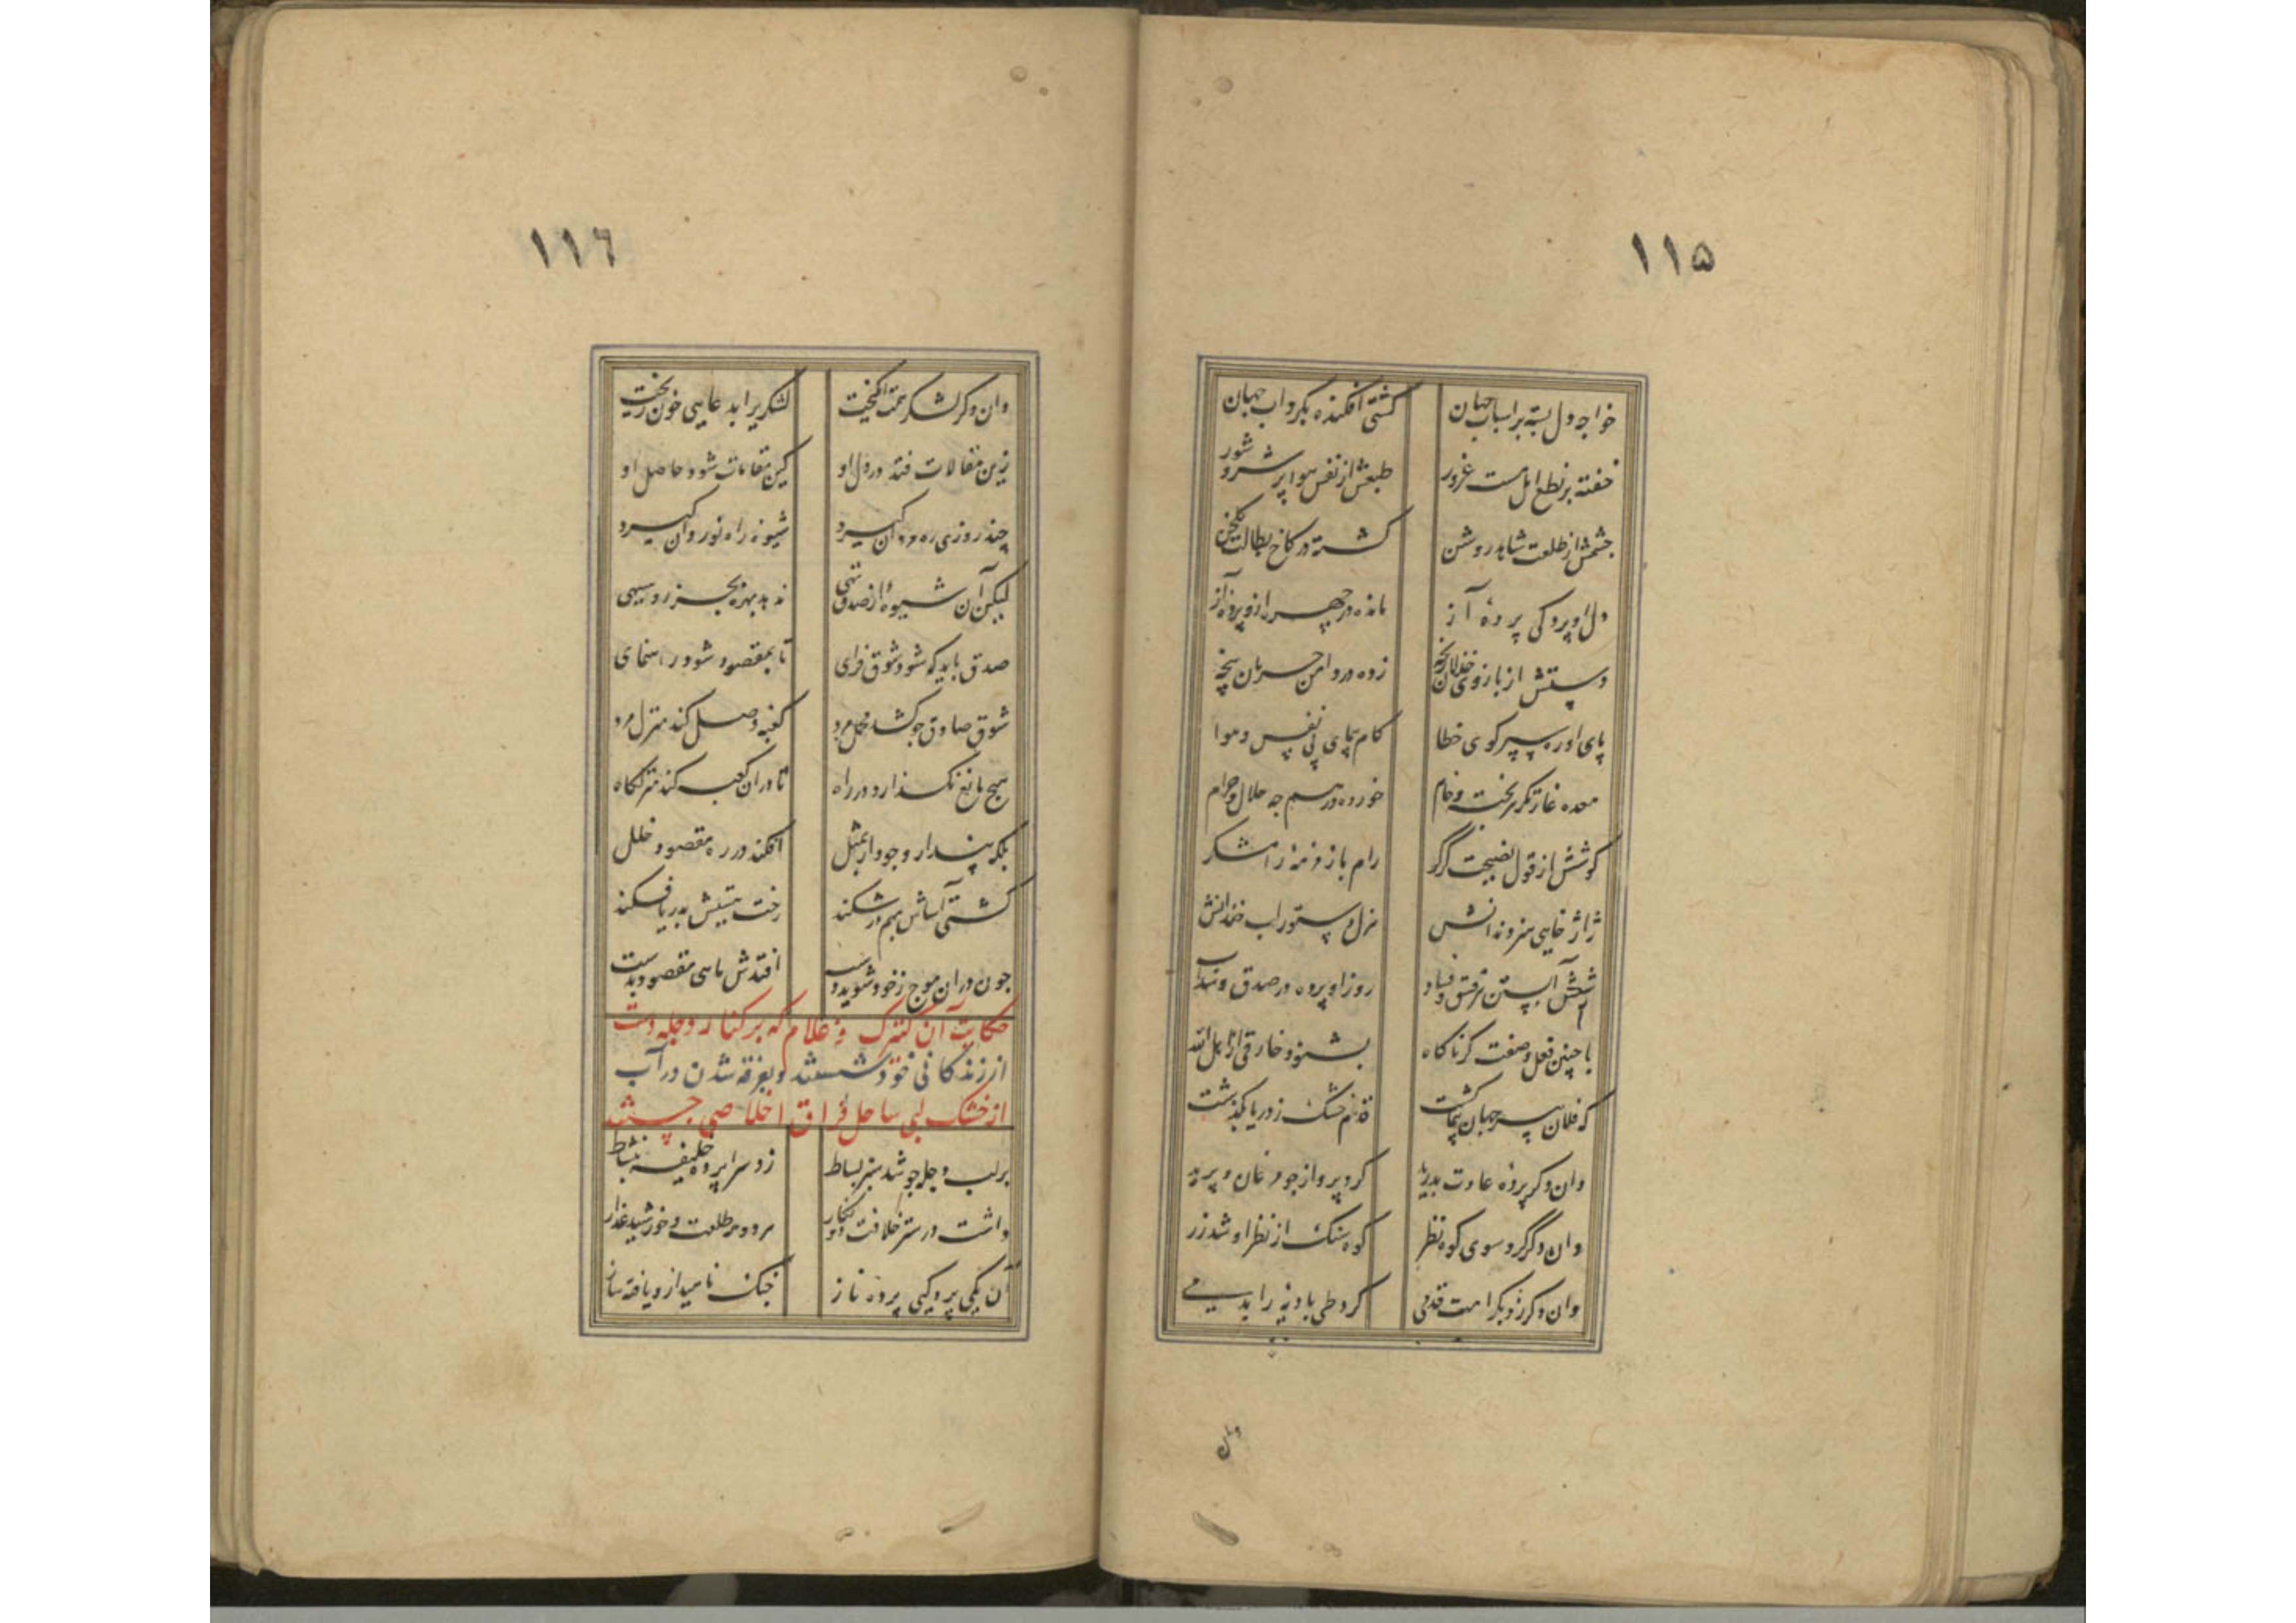 ١١۵
خواجه دل بسته بر اسباب جهان کشتی افکنده بکرداب جهان
خفته بر نطع امل مست غرور طبعش از نفس و هوا پر شر و شور
چشمش از طلعت شاهد روشن کشته در کاخ بطالت
دل او پردکی پردهٔ آز مانده در چهره او پرده آز
دستش از بازوی خذلان رنجه زده در دامن حرمان پنجه
پای او ره سپر کوی خطا کام پیمای پی نفس و هوا
معده غارتکر هر پخته و خام خورده در هم چه حلال و چه حرام
کوشش از قول نصیحت کر کر رام با زمزمه رامشکر
ژاژ خایی هنر دندانش هزل دستور لب خندانش
شبش آبستن هر فسق و فساد روز او پرده در صدق و سداد
با چنین فعل و صفت کر ناکاه بشنود خارقی از اهل الله
که فلان سر جهان پیمایی کشت قدم خشک ز دریا بگذشت
وان دکر پردهٔ عادت بدرید کرد پرواز چو مرغان و پرید
وان دکر کرد سوی کوه نظر کوه سنک از نظر او شد زر
وان دکر زد بکرامت قدمی کرد طی بادیه را بدمی
وان
١١٦
وان دکر لشکر همت انکیخت لشکری را بدعایی خون ریخت
زین مقالات فتد در دل او کین مقامات شود حاصل او
چند روزی ره مردان کیرد شیوهٔ راه نوردان کیرد
لیکن آن شیوه از صدق تهی ندهد بهره بجز روسیهی
صدق باید که شود شوق فزای تا بمقصود شود راهنمای
شوق صادق چو کشد محمل مرد کعبه وصل کند منزل مرد
هیچ مانع نکذارد در راه تا در آن کعبه کند منزلکاه
بلکه پندار وجود ار بمثل افکند در ره مقصود خلل
کشتی آساش بهم در شکند رخت هستیش بدریا فکند
چون در آن موج ز خود شوید دست افتدش ماهی مقصود بدست
حکایت آن کنیزک و غلام که بر کنار دجله دست
از زندکانی خود شستند و بغرقه شدن در آب
از خشک لبی ساحل فراق خلاصی جستند
بر لب دجله چو شد سبز بساط زد سراپرده خلیفه بنشاط
داشت در ستر خلافت دو نکار هر دو مه طلعت و خورشید عذار
آن یکی پردکیی پرده ناز چنک ناهید ازو یافته ساز